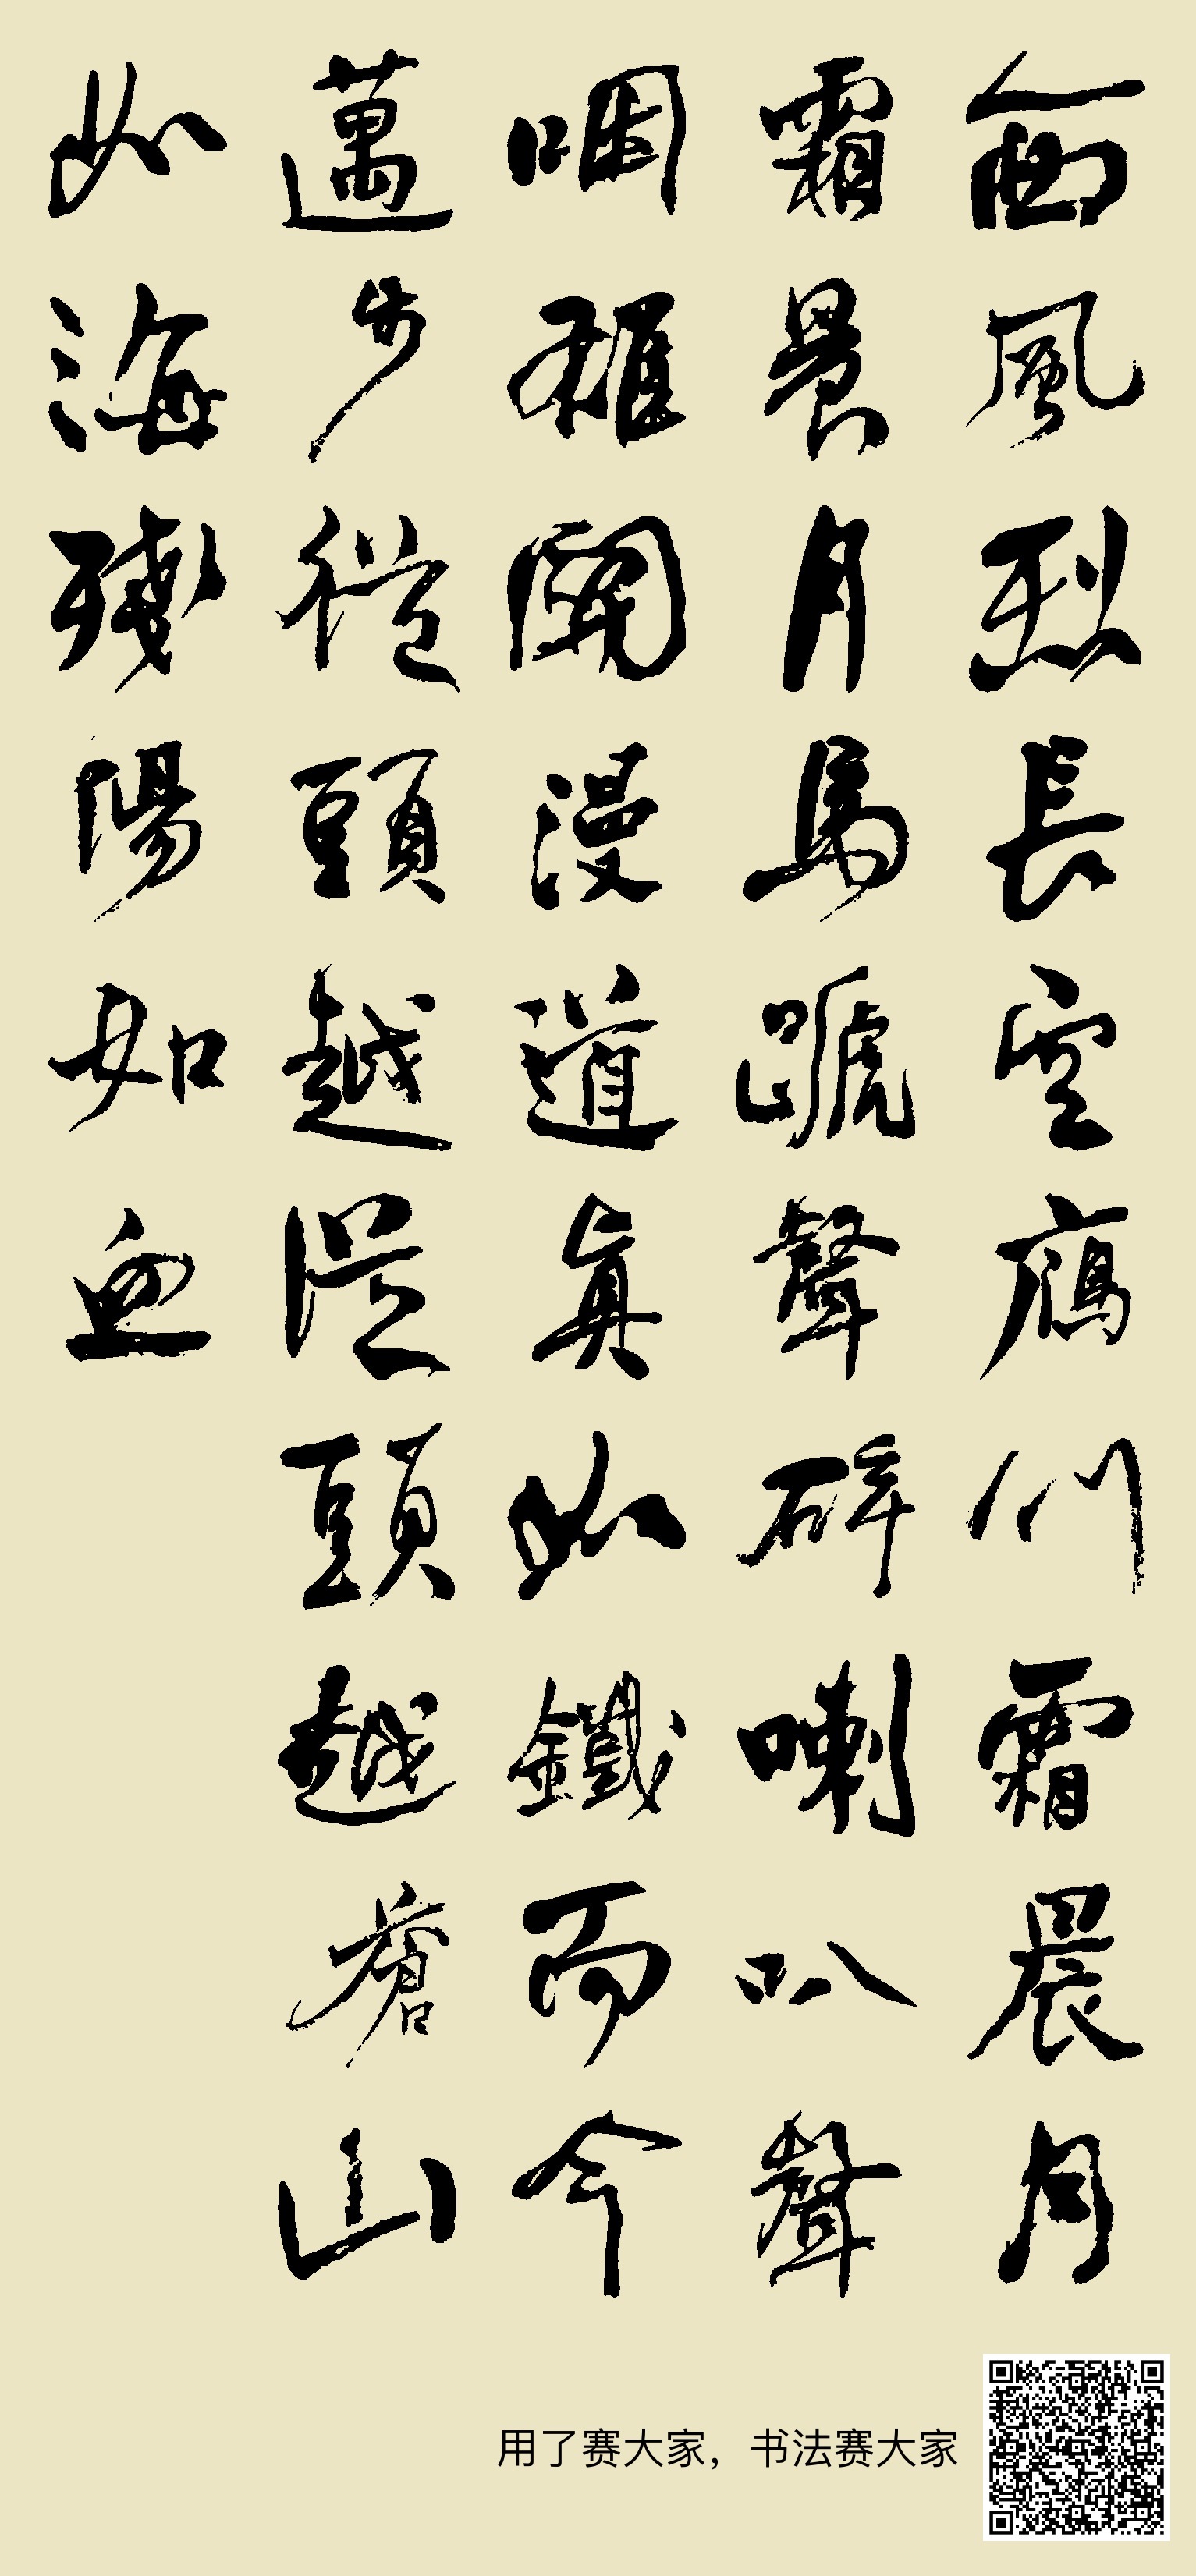 西風烈長空鴈叫霜晨月
霜晨月馬蹏聲碎喇叭聲
咽雄關漫道真如鐵而今
邁步從頭越從頭越蒼山
如海殘陽如血
用了赛大家，书法赛大家